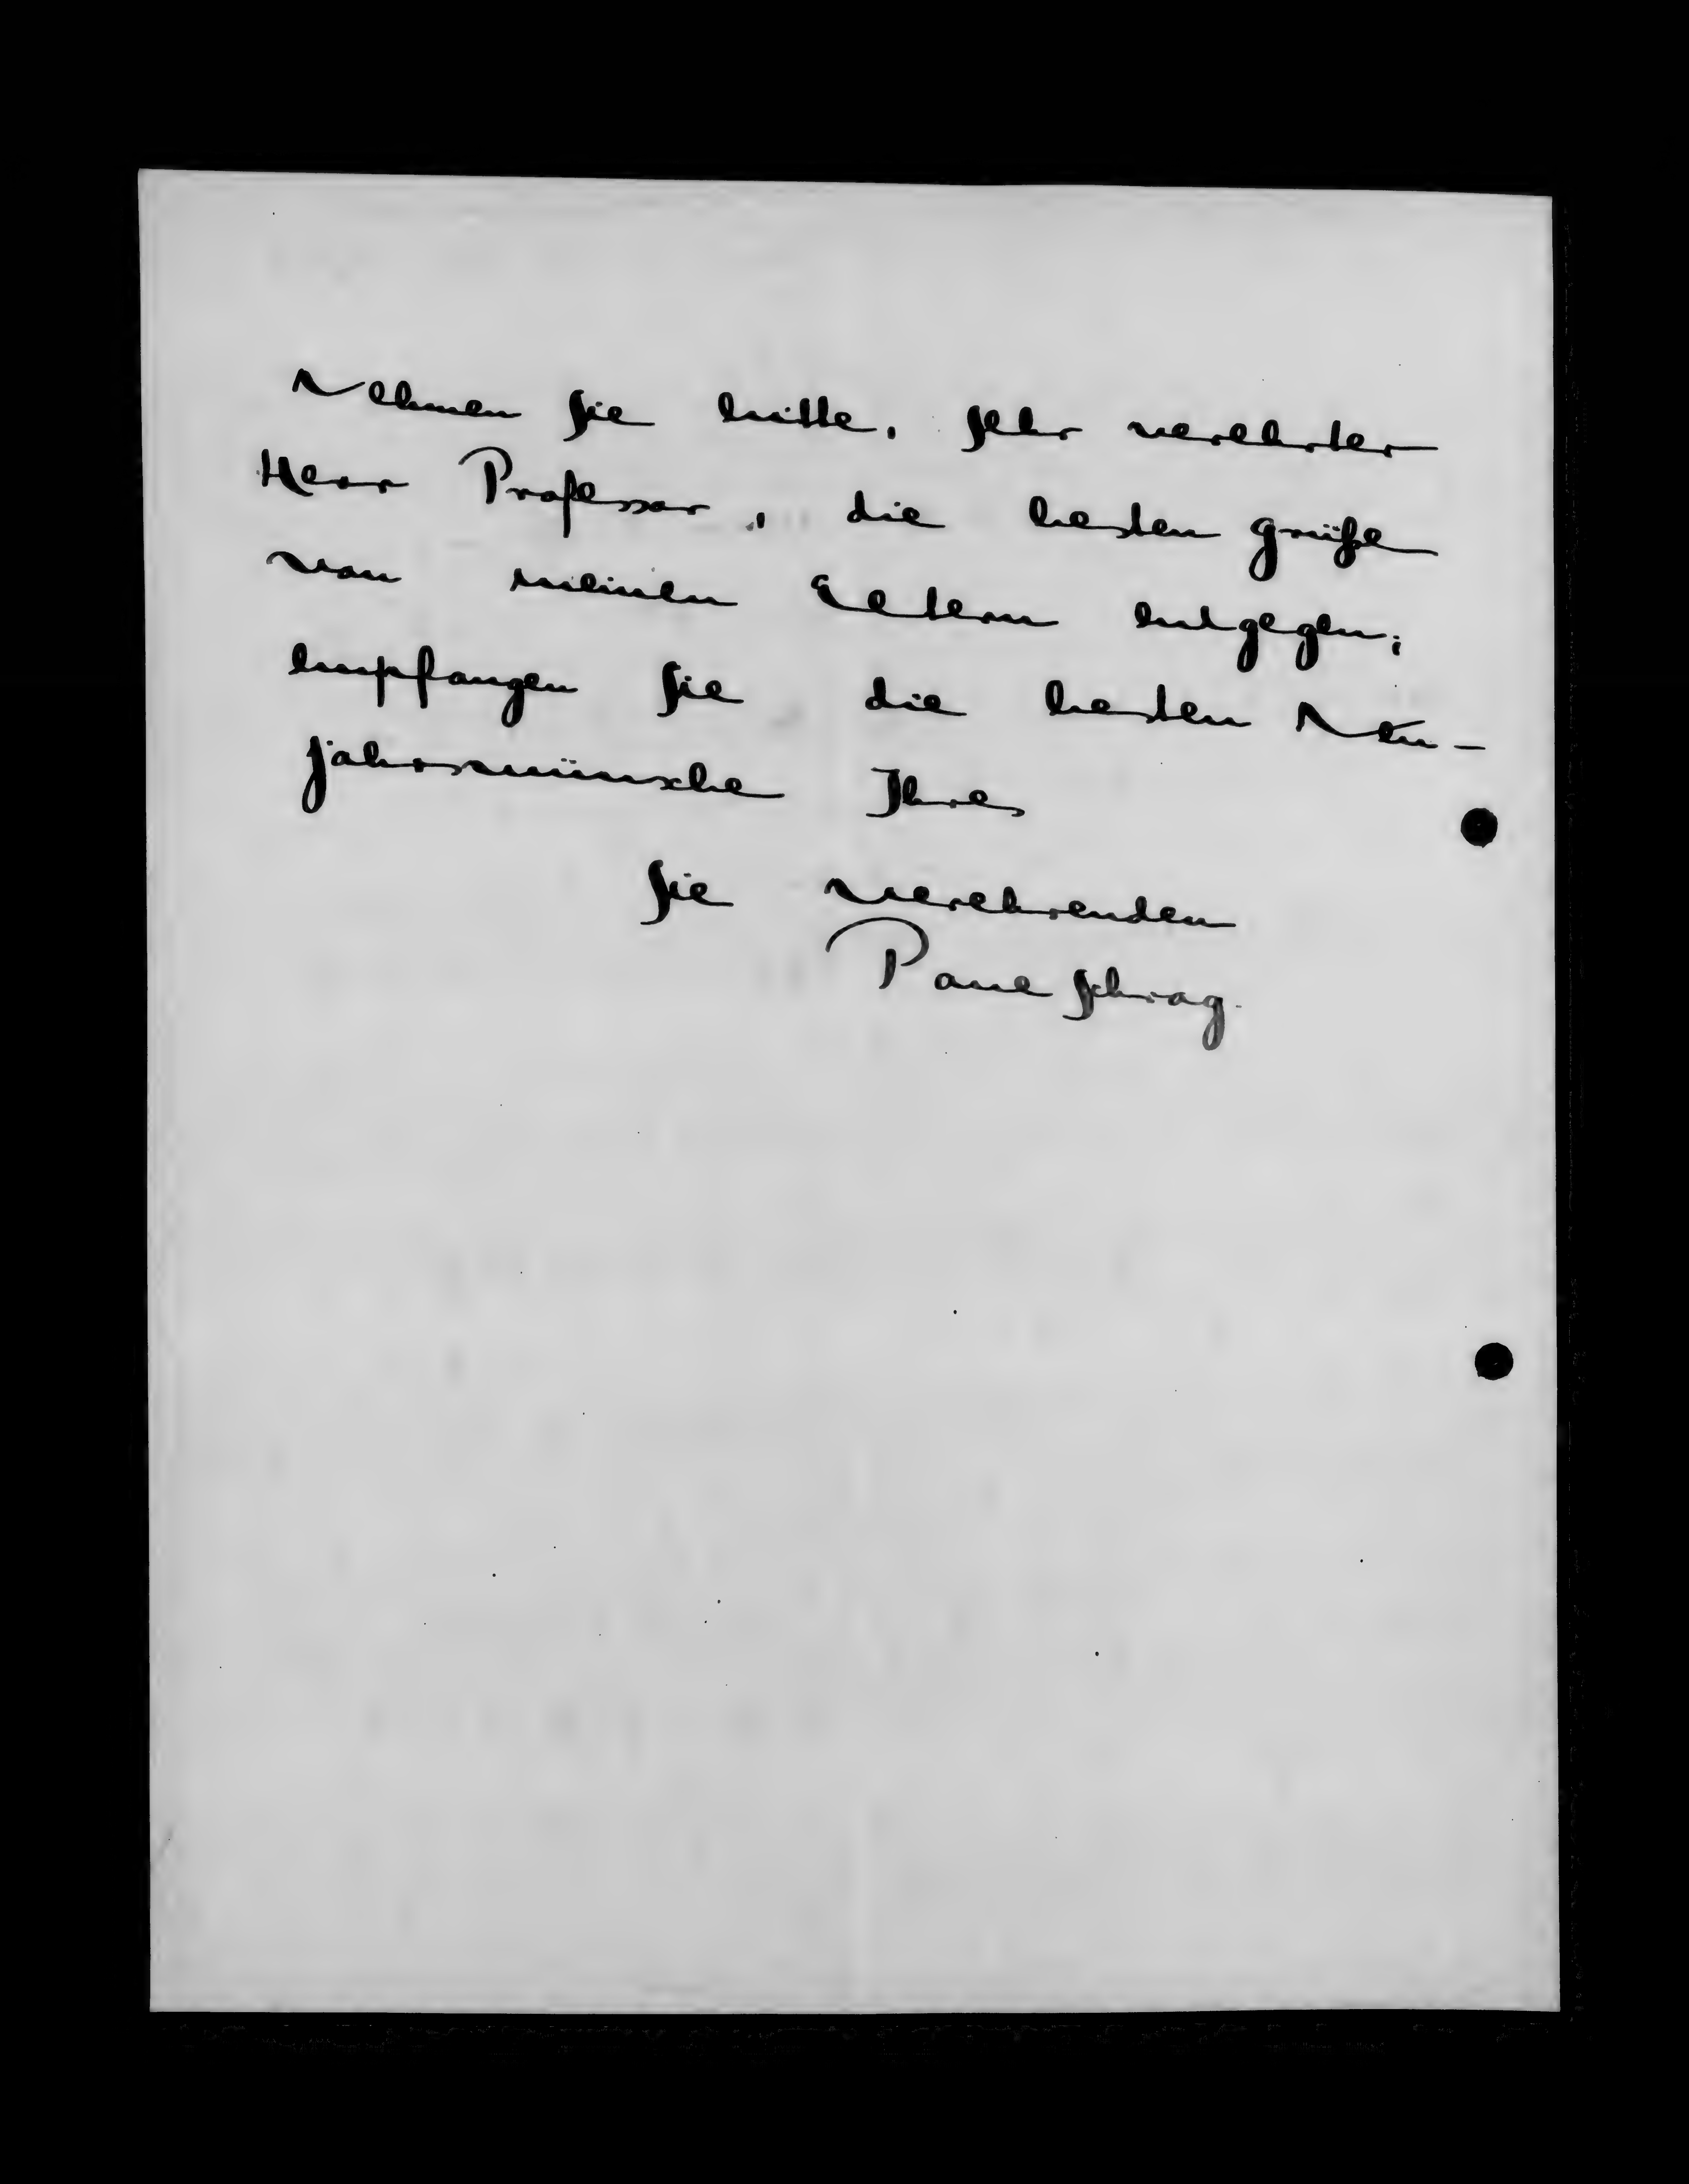 Nehmen Sie bitte, sehr verehrter
Herr Professor, die besten Grüße
von meinen Eltern entgegen;
empfangen Sie die besten Neu-
jahrswünsche Ihres
Sie verehrenden
Paul Schrag.